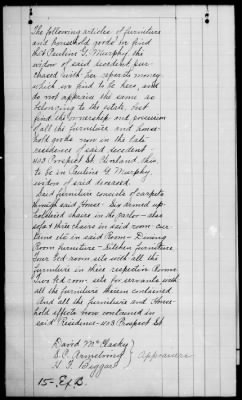 The following articles of furniture
and household goods we find
that Pauline G. Murphy, the
widow of said decedent, pur-
chased with her separate money
which we find to be hers, and
do not appraise the same as
belonging to the estate, but
find the ownership and possession
of all the furniture and house-
hold goods now in the late
residence of said decedent,
403 Prospect St. Cleveland, Ohio,
to be in Pauline G. Murphy,
widow of said deceased.
Said furniture consists of carpets
through said House - Six Armed up-
holstered chairs in the parlor - also
sofa & three chairs in said room - cur-
tains etc in said Room - Dining
Room furniture - Kitchen furniture
Four bed room sets with all the
furniture in these respective Rooms
Two bed room sets for servants with
all the furniture therein contained
And all the furniture and House-
hold effects now contained in
said Residence - 403 Prospect St.
David
S. C. Armstrong } Appraisers
15 - Ex B.